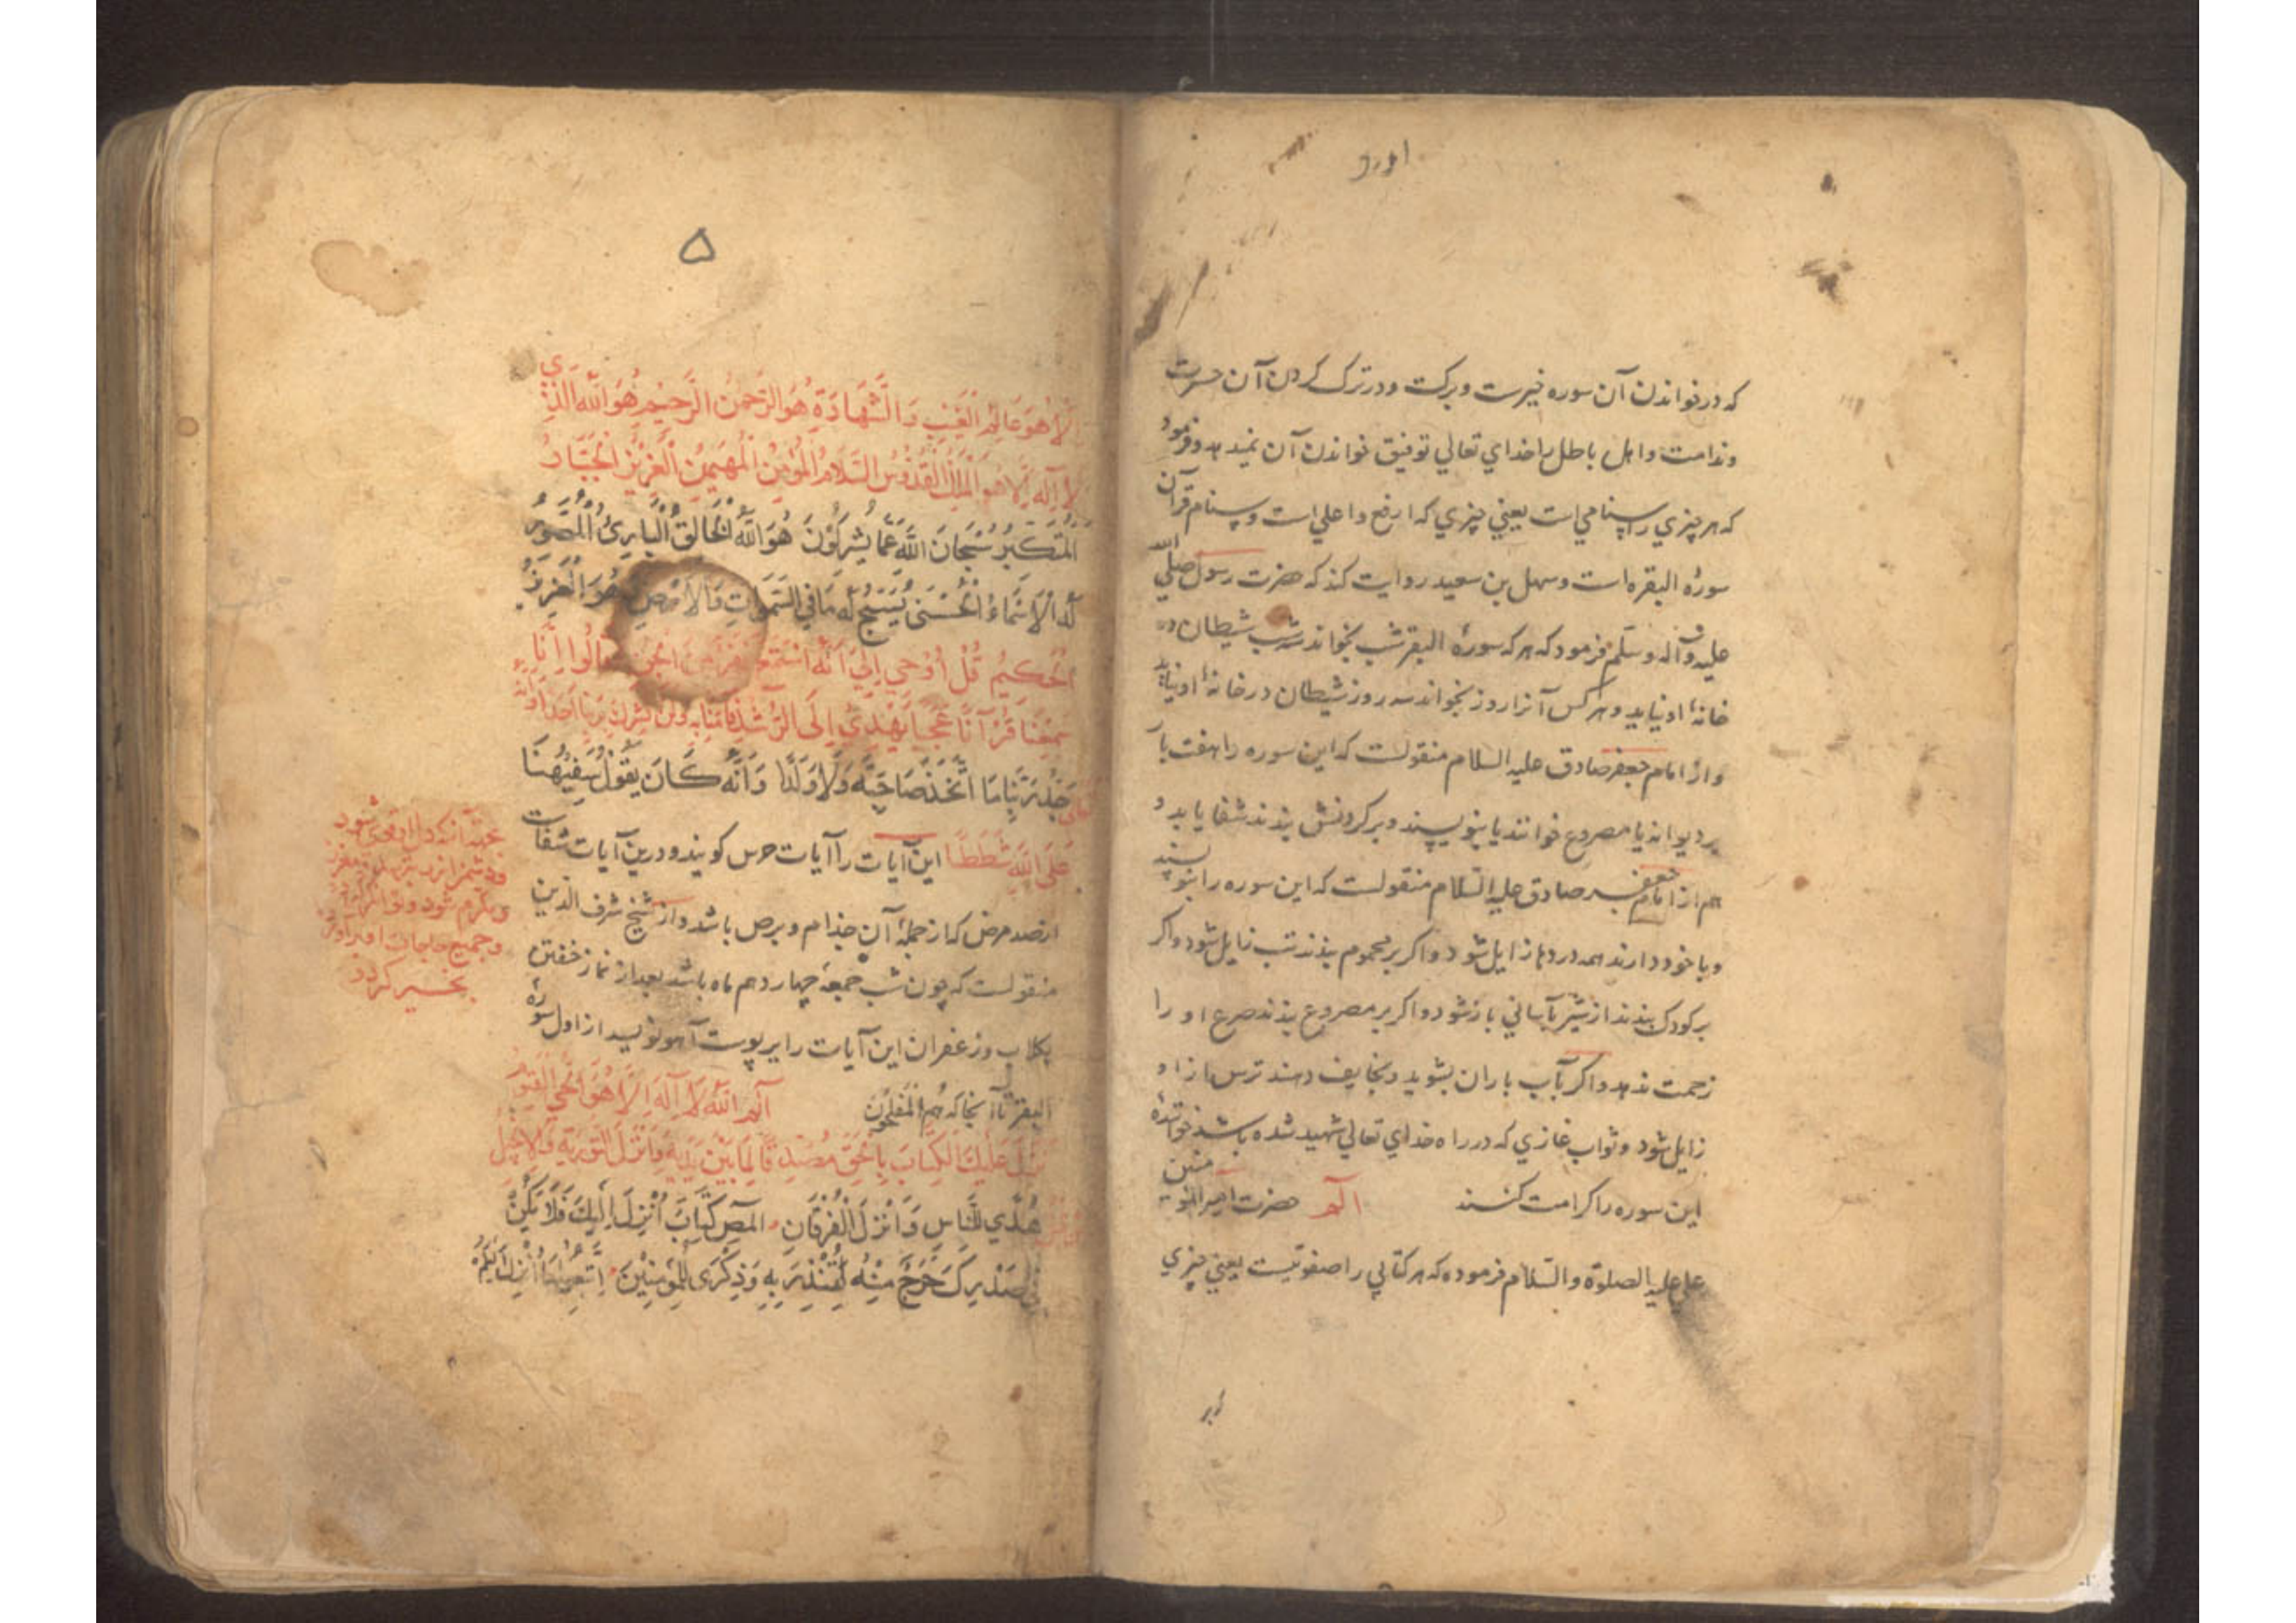 که در خواندن آن سوره خیرست و برکت و در ترک کردن آن حسرت
و ندامت و اهل باطل را خدای تعالی توفیق خواندن آن نمیدهد و فرمود
که هر چیزی را سنامی است یعنی چیزی که ارفع و اعلی است و سنام قرآن
سورهٔ البقره است و سهل بن سعید روایت کند که حضرت رسول صلی الله
علیه و آله و سلم فرمود که هر که سورهٔ البقره شب بخواند سه شب شیطان در
خانهٔ او نیاید و هر کس آنرا روز بخواند سه روز شیطان در خانهٔ او نیاید
و از امام جعفر صادق علیه السلام منقولست که این سوره را هفت بار
بر دیوانه یا مصروع خوانند یا بنویسند و بر گردنش بندند شفا یابد و
هم از امام جعفر صادق علیه السلام منقولست که این سوره را بنویسند
و با خود دارند همه دردها زایل شود و اگر بر محموم بندند تب زایل شود و اگر
بر کودک بندند از شیر بآسانی باز شود و اگر بر مصروع بندند صرع او را
زحمت ندهد و اگر بآب باران بشوید و بخایف دهند ترس از او
زایل شود و ثواب غازی که در راه خدای تعالی شهید شده باشد خوانندهٔ
این سوره را کرامت کنند الم حضرت امیر المؤمنین
علی علیه الصلوة والسلام فرموده که هر کتابی را صفوتیست یعنی چیزی
۵
إلا هو عالم الغيب والشهادة هو الرحمن الرحيم هو الله الذي
لا إله إلا هو الملك القدوس السلام المؤمن المهيمن العزيز الجبار
المتكبر سبحان الله عما يشركون هو الله الخالق البارئ المصور
له الأسماء الحسنى يسبح له ما في السموات والأرض وهو العزيز
الحكيم قل أوحي إلي أنه استمع نفر من الجن فقالوا إنا
سمعنا قرآنا عجبا يهدي إلى الرشد فآمنا به ولن نشرك بربنا أحدا وأنه
تعالى جد ربنا ما اتخذ صاحبة ولا ولدا وأنه كان يقول سفيهنا
على الله شططا این آیات را آیات حرس گویند و درین آیات شفاست
از صد مرض که از جملهٔ آن جذام و برص باشد و از شیخ شرف الدین
منقولست که چون شب جمعهٔ چهاردهم ماه باشد بعد از نماز خفتن
بگلاب و زعفران این آیات را بر پوست آهو نویسد از اول سورهٔ
البقره تا آنجا که هم المفلحون الم الله لا إله إلا هو الحي القيوم
نزل عليك الكتاب بالحق مصدقا لما بين يديه وأنزل التورية والإنجيل
من قبل هدى للناس وأنزل الفرقان المص كتاب أنزل إليك فلا يكن
في صدرك حرج منه لتنذر به وذكرى للمؤمنين اتبعوا ما أنزل إليكم
و جمیع حاجات
بخیر گردد